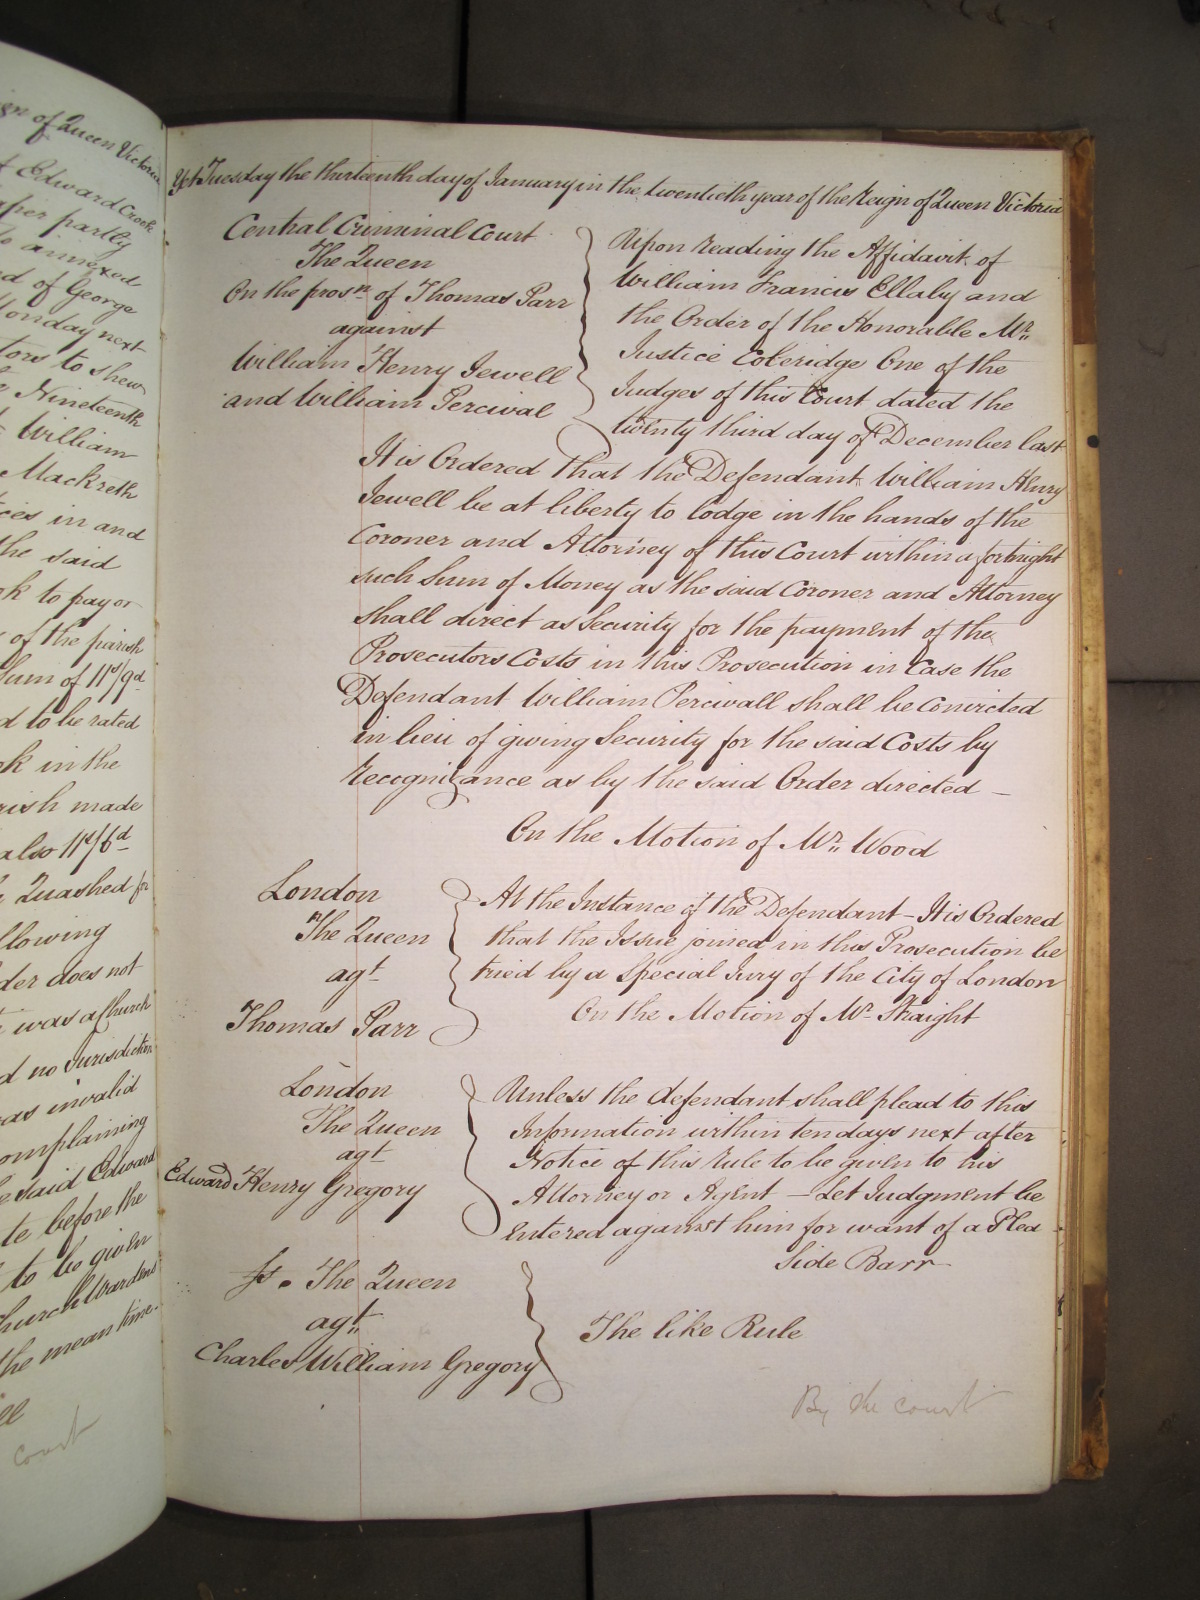 ign of Queen Victoria
t Edward Crook
aper partly
to annexed
d of George
Monday next
tors to shew
e Nineteenth
t William
Mackreth
ces in and
the said
ok to pay or
of the parish
Sum of 11s/9d
d to be rated
ok in the
rish made
also 11s/6d
Quashed for
llowing
der does not
t was a Church
d no Jurisdiction
was invalid
omplaining
e said Edward
te before the
to be given
hurch Wardens
the mean time
ll
court
Yet Tuesday the thirteenth day of January in the twentieth year of the Reign of Queen Victoria
Central Criminal Court
The Queen
On the prosn of Thomas Parr
against
William Henry Jewell
and William Percival
Upon reading the Affidavit of
William Francis Ellaby and
the Order of the Honorable Mr
Justice Coleridge One of the
Judges of this Court dated the
twenty third day of December last
It is Ordered that the Defendant William Henry
Jewell be at liberty to lodge in the hands of the
Coroner and Attorney of this Court within a fortnight
such Sum of Money as the said Coroner and Attorney
shall direct as Security for the payment of the
Prosecutors Costs in this Prosecution in Case the
Defendant William Percivall shall be Convicted
in lieu of giving Security for the said Costs by
recognizance as by the said Order directed —
On the Motion of Mr Wood
London
The Queen
agt
Thomas Parr
At the Instance of the Defendant – It is Ordered
that the Issue joined in this Prosecution be
tried by a Special Jury of the City of London
On the Motion of Mr Straight
London
The Queen
agt
Edward Henry Gregory
Unless the defendant shall plead to this
Information within ten days next after
Notice of this rule to be given to his
Attorney or Agent – Let Judgment be
entered against him for want of a Plea
Side Barr
The Queen
agt
Charles William Gregory
The like Rule
By the court